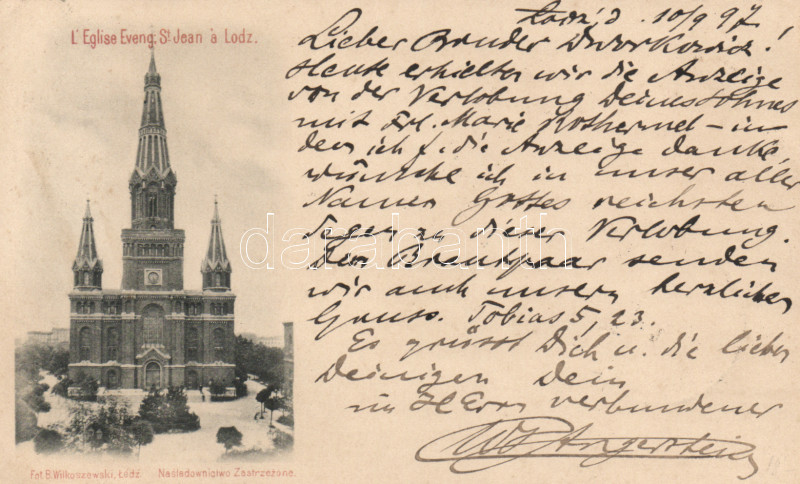 L'Eglise Eveng. St Jean à Lodz.
Lodz, d. 10/9 97.
Lieber Bruder Dworkowicz!
Heute erhielten wir die Anzeige
von der Verlobung Deines Sohnes
mit Frl. Marie Rothermel – in-
dem ich f. die Anzeige danke,
wünsche ich in unser aller
Namen Gottes reichsten
Segen zu dieser Verlobung.
Dem Brautpaar senden
wir auch unsern herzlichen
Gruss. Tobias 5, 23.
Es grüsst Dich u. die lieben
Deinigen Dein
im HErrn verbundener
Angerstein
darabanth
Fot. B. Wilkoszewski, Łódź. Naśladownictwo Zastrzeżone.